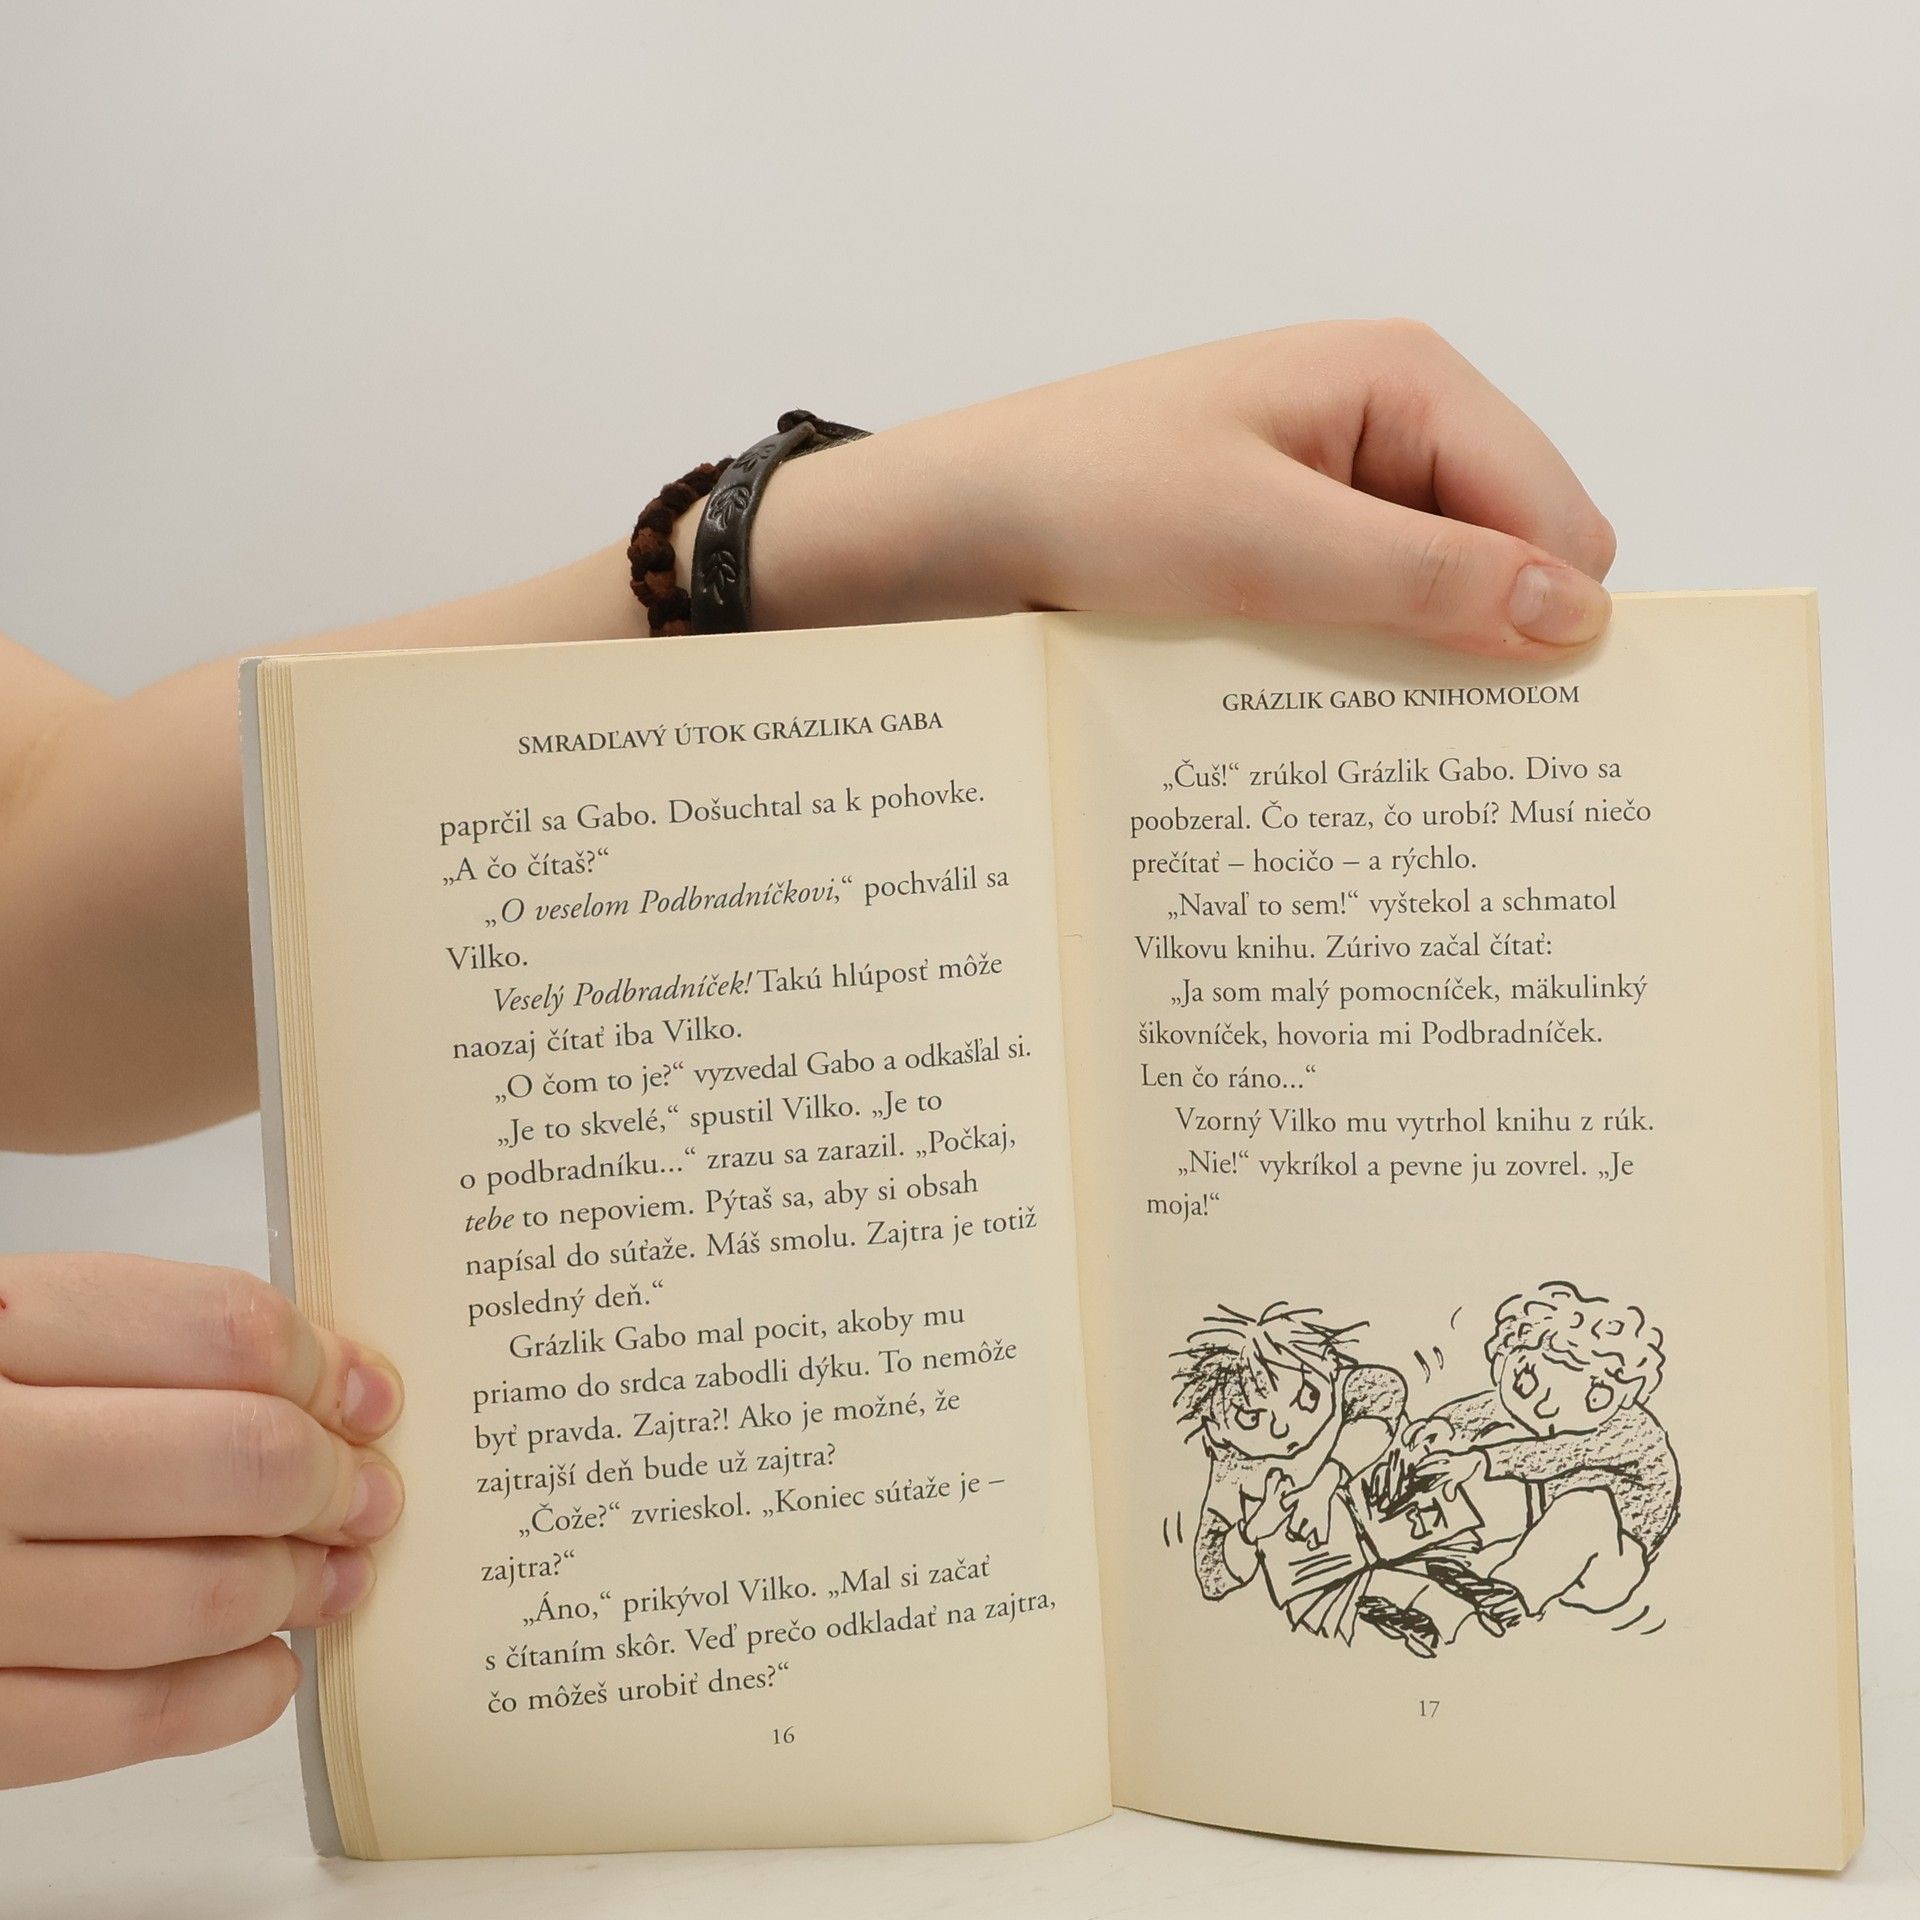 SMRADĽAVÝ ÚTOK GRÁZLIKA GABA
paprčil sa Gabo. Došuchtal sa k pohovke.
„A čo čítaš?“
„O veselom Podbradníčkovi,“ pochválil sa
Vilko.
Veselý Podbradníček! Takú hlúposť môže
naozaj čítať iba Vilko.
„O čom to je?“ vyzvedal Gabo a odkašľal si.
„Je to skvelé,“ spustil Vilko. „Je to
o podbradníku...“ zrazu sa zarazil. „Počkaj,
tebe to nepoviem. Pýtaš sa, aby si obsah
napísal do súťaže. Máš smolu. Zajtra je totiž
posledný deň.“
Grázlik Gabo mal pocit, akoby mu
priamo do srdca zabodli dýku. To nemôže
byť pravda. Zajtra?! Ako je možné, že
zajtrajší deň bude už zajtra?
„Čože?“ zvrieskol. „Koniec súťaže je –
zajtra?“
„Áno,“ prikývol Vilko. „Mal si začať
s čítaním skôr. Veď prečo odkladať na zajtra,
čo môžeš urobiť dnes?“
16
GRÁZLIK GABO KNIHOMOĽOM
„Čuš!“ zrúkol Grázlik Gabo. Divo sa
poobzeral. Čo teraz, čo urobí? Musí niečo
prečítať – hocičo – a rýchlo.
„Navaľ to sem!“ vyštekol a schmatol
Vilkovu knihu. Zúrivo začal čítať:
„Ja som malý pomocníček, mäkulinký
šikovníček, hovoria mi Podbradníček.
Len čo ráno...“
Vzorný Vilko mu vytrhol knihu z rúk.
„Nie!“ vykríkol a pevne ju zovrel. „Je
moja!“
17